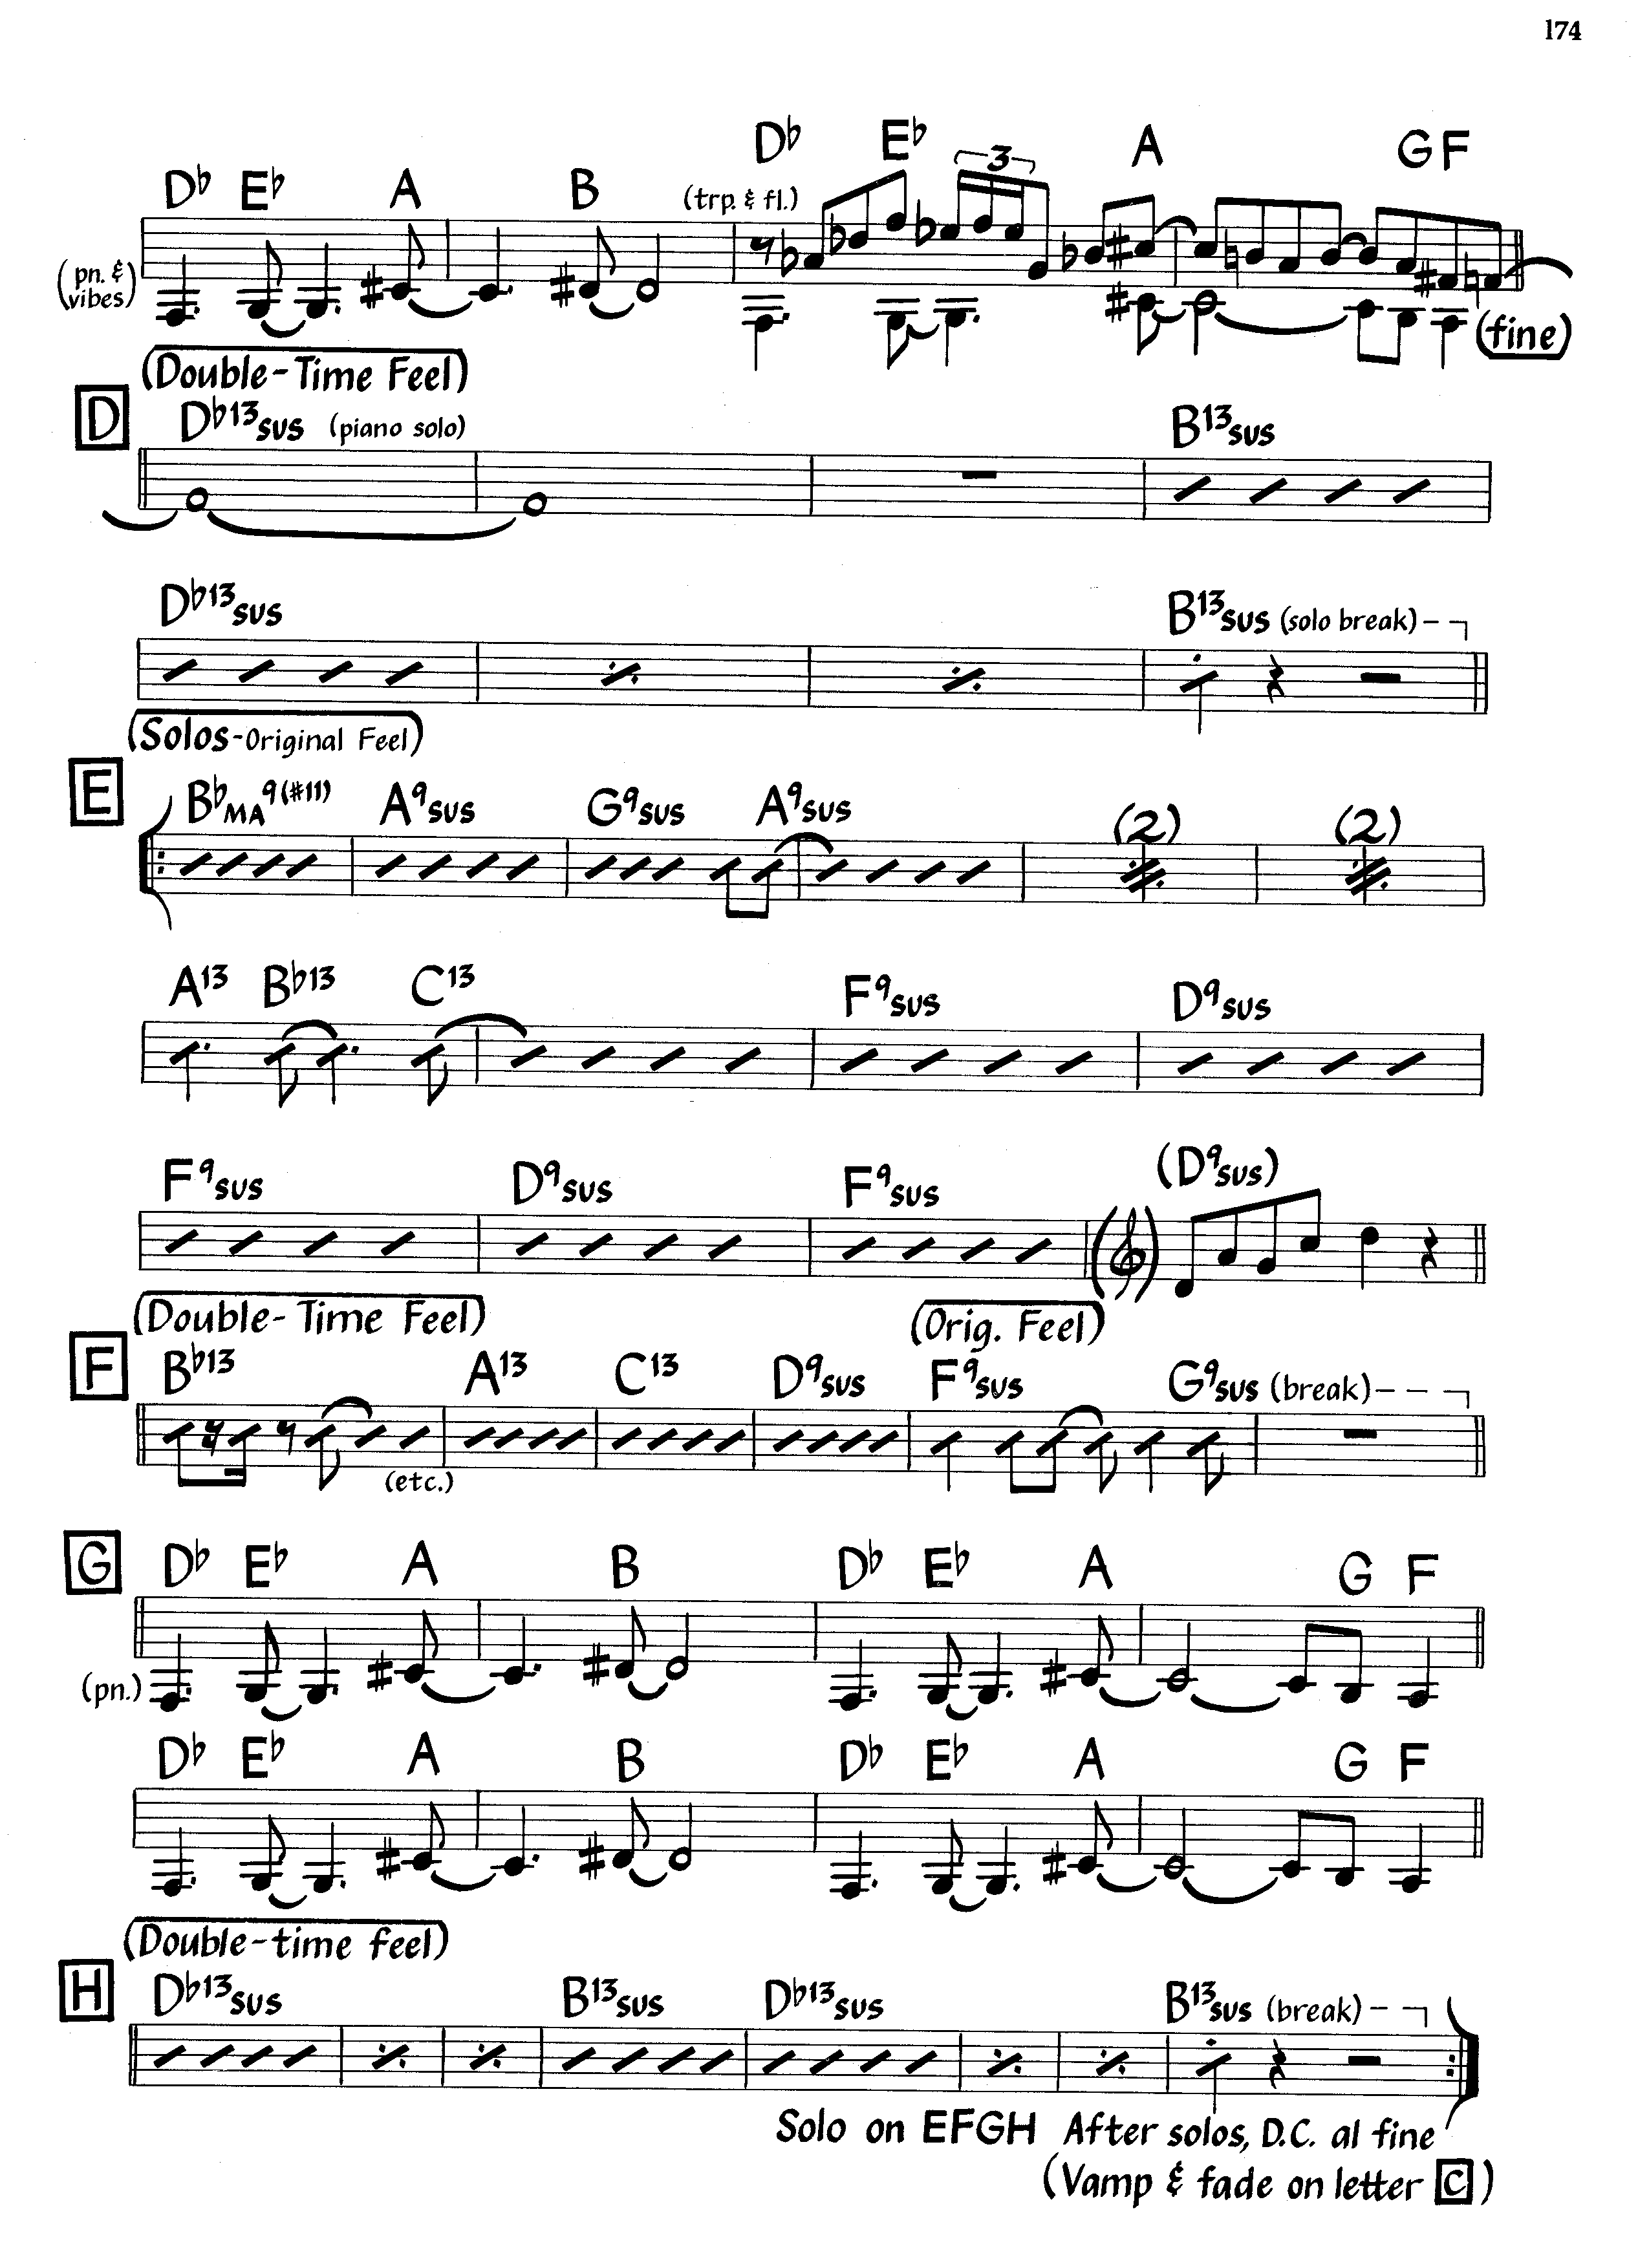 174
D♭ E♭ A
D♭ E♭ A B (trp. & fl.) 3 G F
(pn. & vibes)
(fine)
(Double-Time Feel)
D D♭13sus (piano solo) B13sus
D♭13sus B13sus (solo break)
(Solos-Original Feel)
E B♭MA9(#11) A9sus G9sus A9sus (2) (2)
A13 B♭13 C13 F9sus D9sus
F9sus D9sus F9sus (D9sus)
(Double-Time Feel) (Orig. Feel)
F B♭13 A13 C13 D9sus F9sus G9sus (break)
(etc.)
G D♭ E♭ A B D♭ E♭ A G F
(pn.)
D♭ E♭ A B D♭ E♭ A G F
(Double-time feel)
H D♭13sus B13sus D♭13sus B13sus (break)
Solo on EFGH After solos, D.C. al fine
(Vamp & fade on letter C)